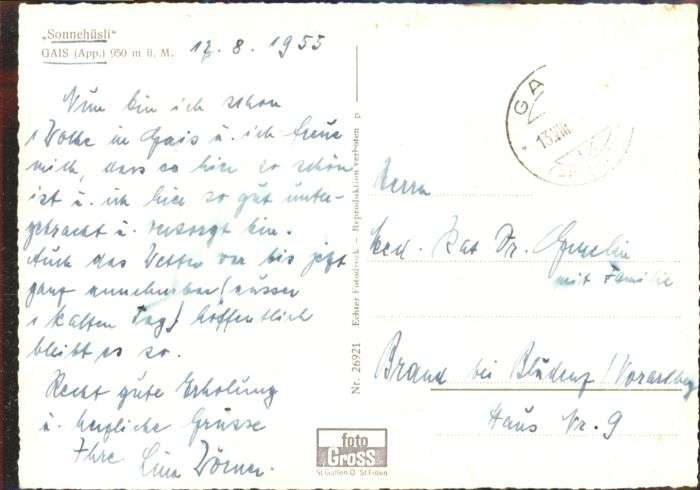 „Sonnehüsli"
GAIS (App.) 950 m ü. M.
12. 8. 1955
Nun bin ich schon
1 Woche in Gais u. ich freue
mich, dass es hier so schön
ist u. ich hier so gut unter-
gebracht u. versorgt bin.
Auch das Wetter war bis jetzt
ganz annehmbar (ausser
1 kalten Tag) hoffentlich
bleibt es so.
Recht gute Erholung
u. herzliche Grüsse
Ihre Lina Wörner.
Nr. 26921 Echter Fotodruck – Reproduktion verboten p
foto
GROSS
St. Gallen O. St. Fiden
GA
13. VIII
Herrn
Med. Rat Dr. Gmelin
mit Familie
Brand bei Bludenz / Vorarlberg
Haus Nr. 9